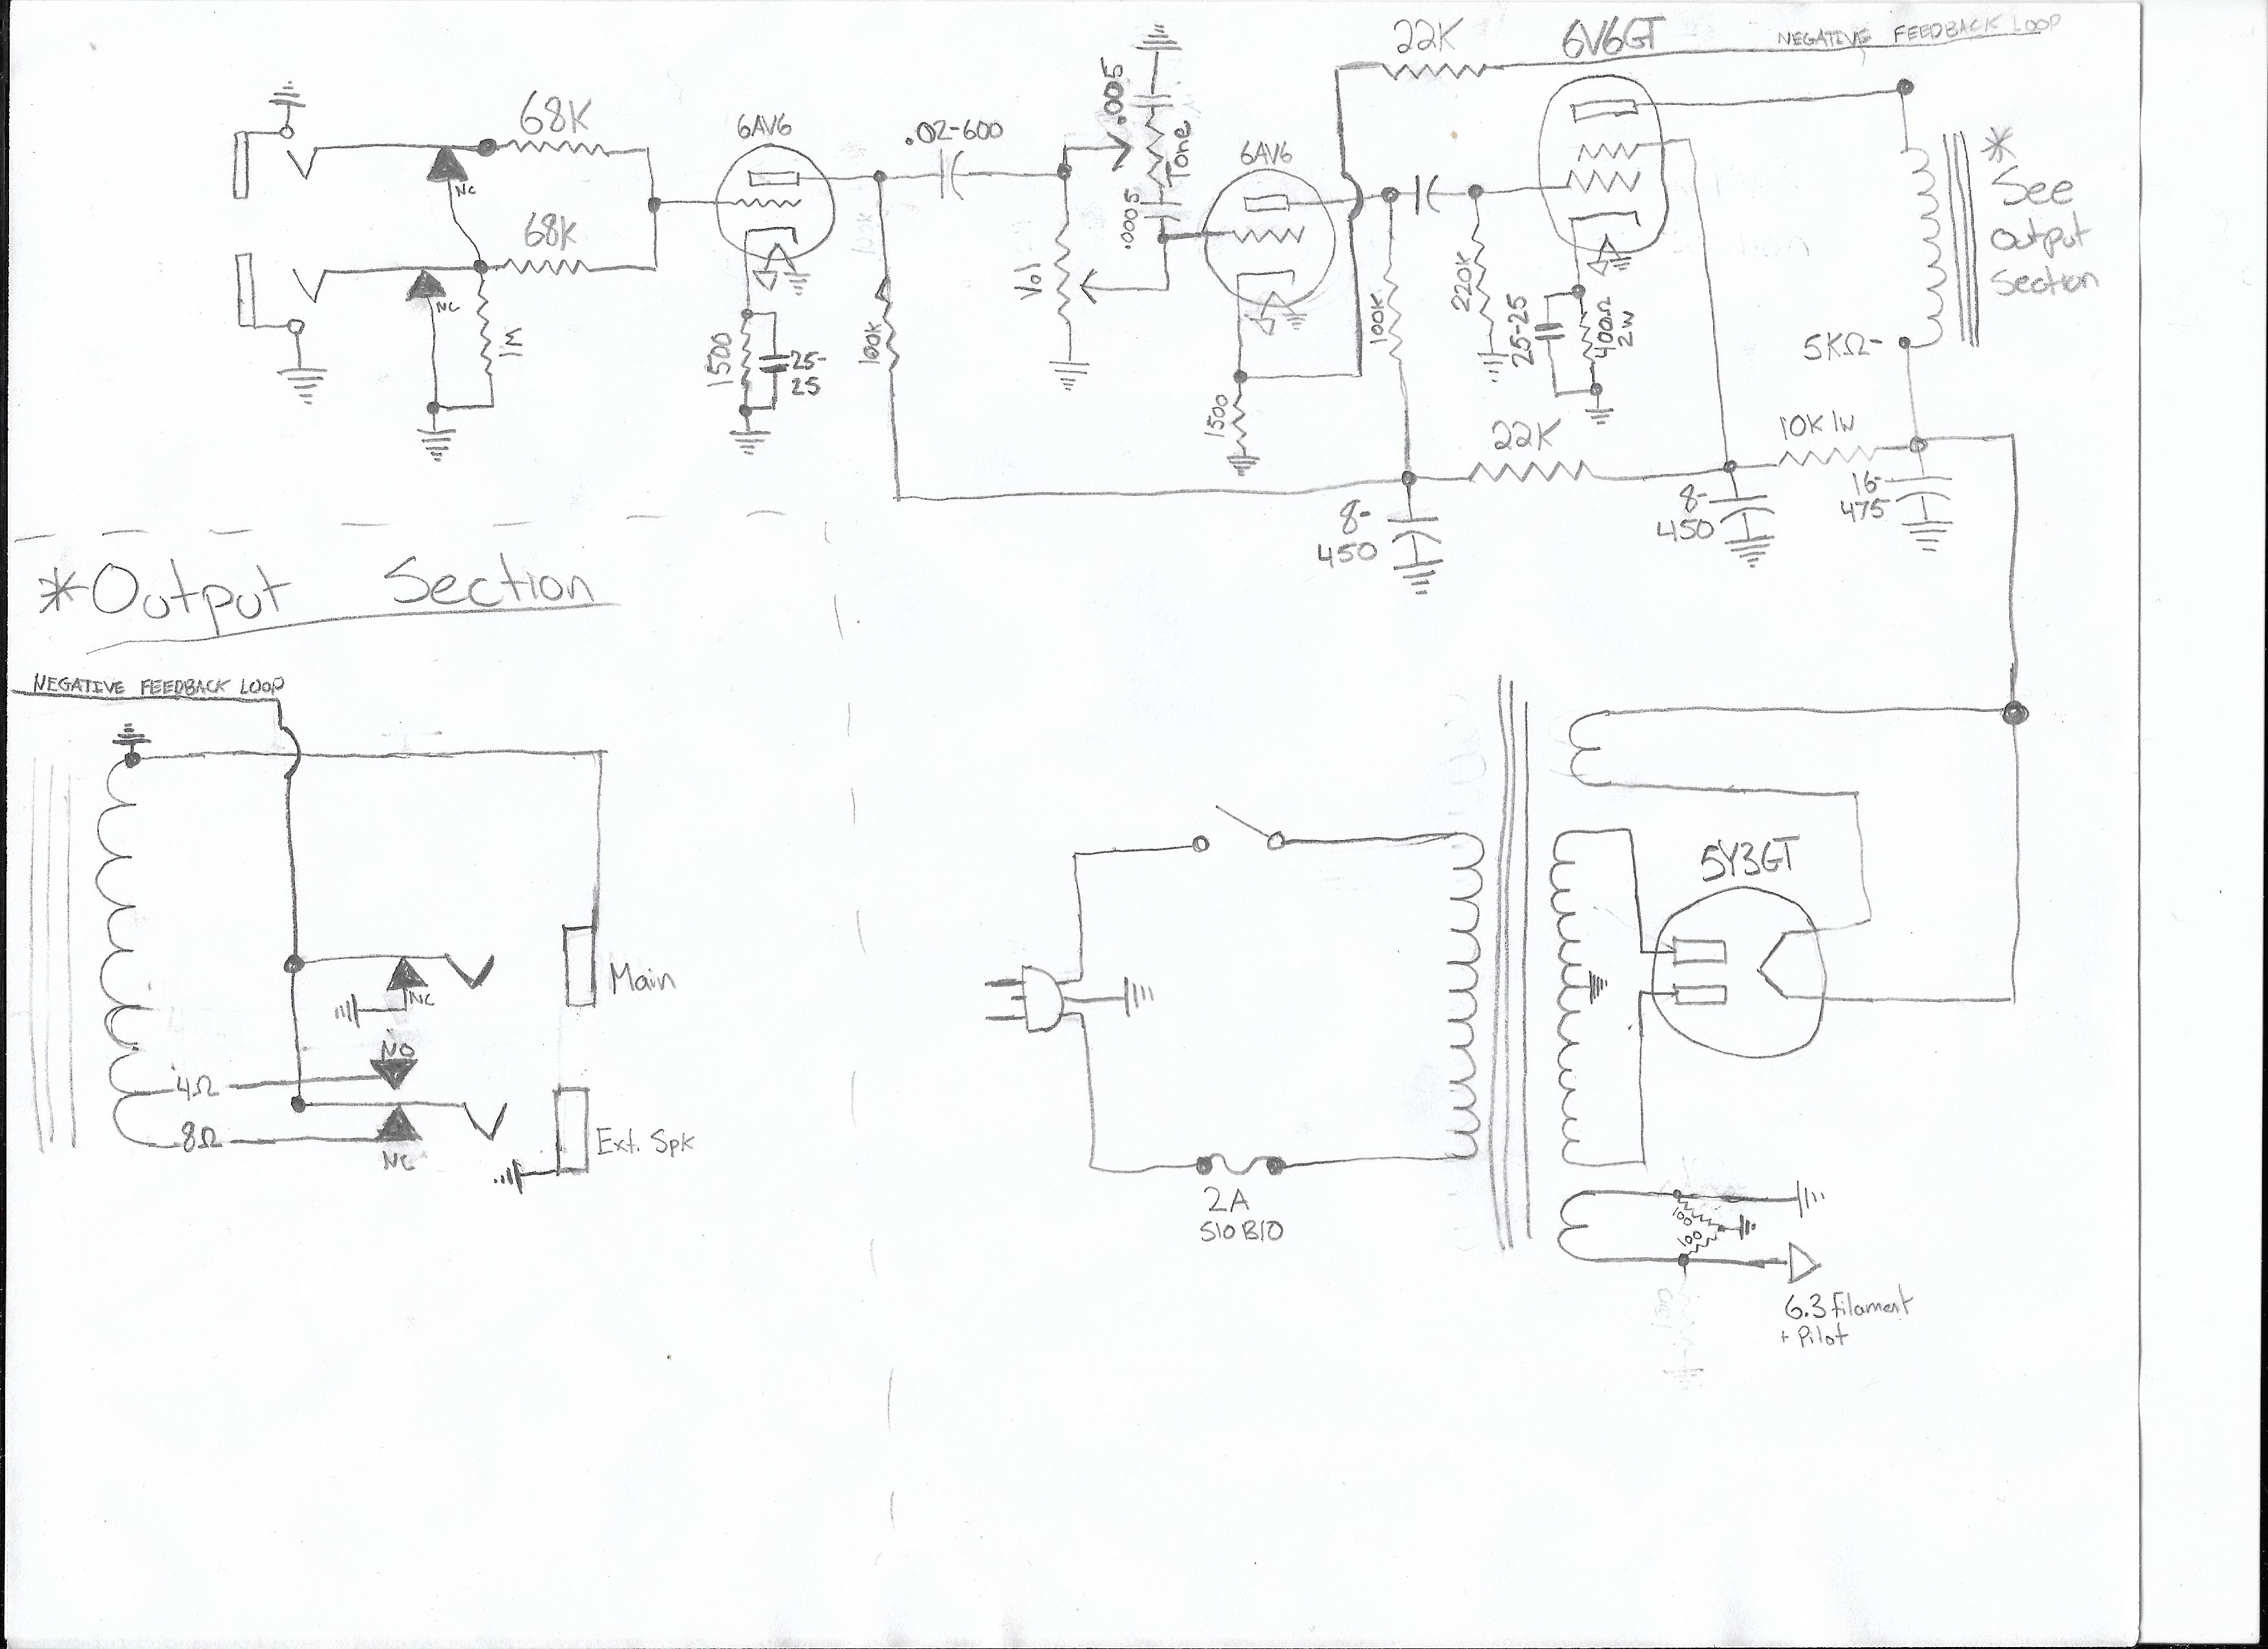 22K
6V6GT
NEGATIVE FEEDBACK LOOP
68K
6AV6
.02-600
.005
Tone
.0005
6AV6
NC
68K
NC
1M
1500
25-
25
100K
Vol
1500
100K
220K
25-25
400Ω
2W
*
See
output
Section
5KΩ-
22K
10K 1W
8-
450
8-
450
16-
475
*Output Section
NEGATIVE FEEDBACK LOOP
NC
Main
NO
4Ω
8Ω
NC
Ext. Spk
5Y3GT
2A
SloBlo
100
100
6.3 filament
+ Pilot